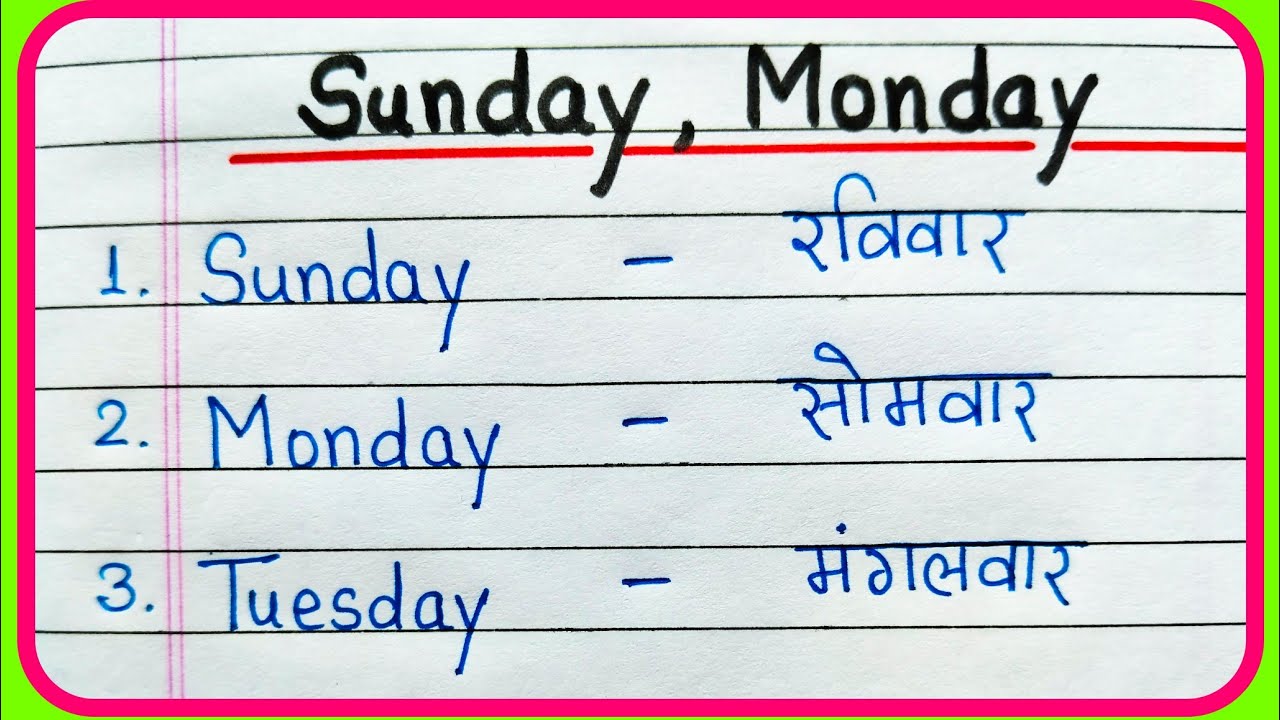 Sunday, Monday
1. Sunday - रविवार
2. Monday - सोमवार
3. Tuesday - मंगलवार